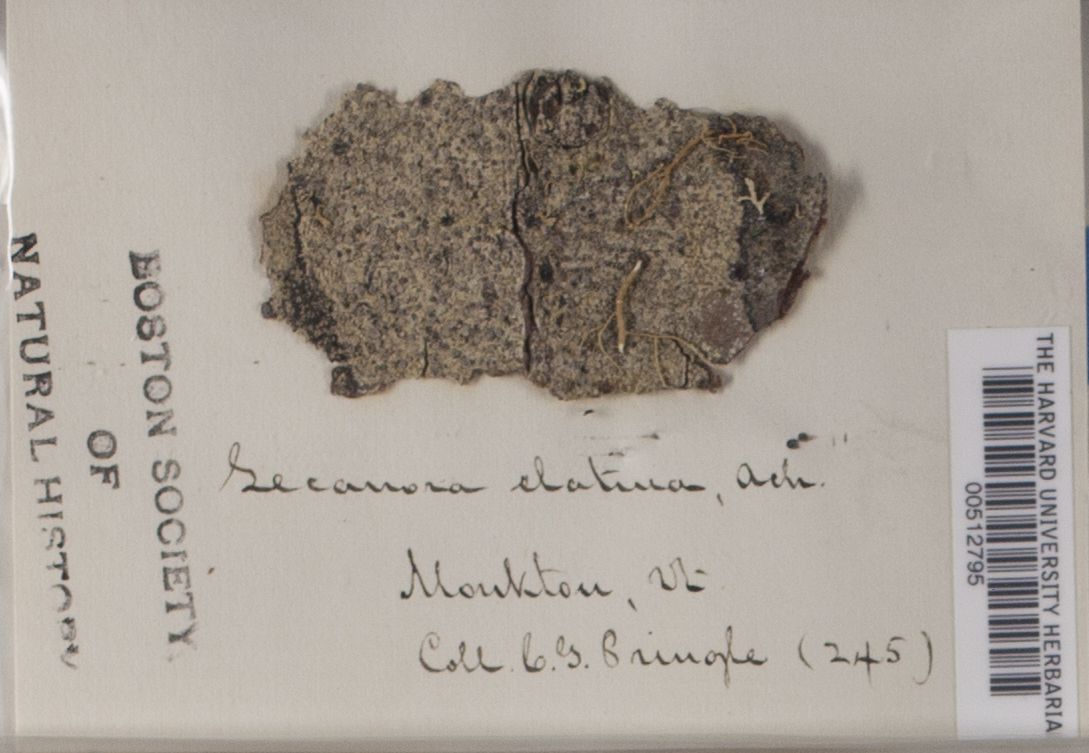 BOSTON SOCIETY
OF
NATURAL HISTORY
Lecanora elatina, Ach.
Monkton, Vt
Coll. C. G. Pringle (245)
THE HARVARD UNIVERSITY HERBARIA
00512795